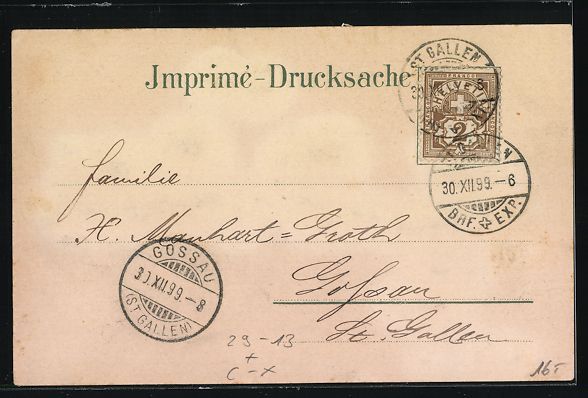 Imprimé-Drucksache
ST. GALLEN
HELVETIA
FRANCO
2
30.XII.99.-6
BRF. EXP.
Familie
H. Manhart=Groth
Gossau
St. Gallen
GOSSAU
30.XII.99.-8
(ST. GALLEN)
29-13
+
C-X